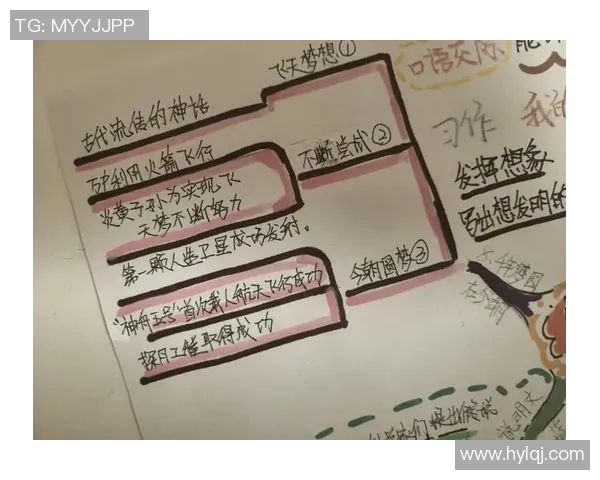 TG: MYYJJPP
飞天梦想①
古代流传的神话
不断尝试②
万户利用火箭飞行
炎黄子孙为实现飞
天梦不断努力
今朝圆梦③
第一颗人造卫星成功发射。
"神舟五号"首次载人航天飞行成功
探月工程取得成功
口语交际
习作
我的
发挥想象
写出想发明的
提出假说
说明文
www.hylqj.com